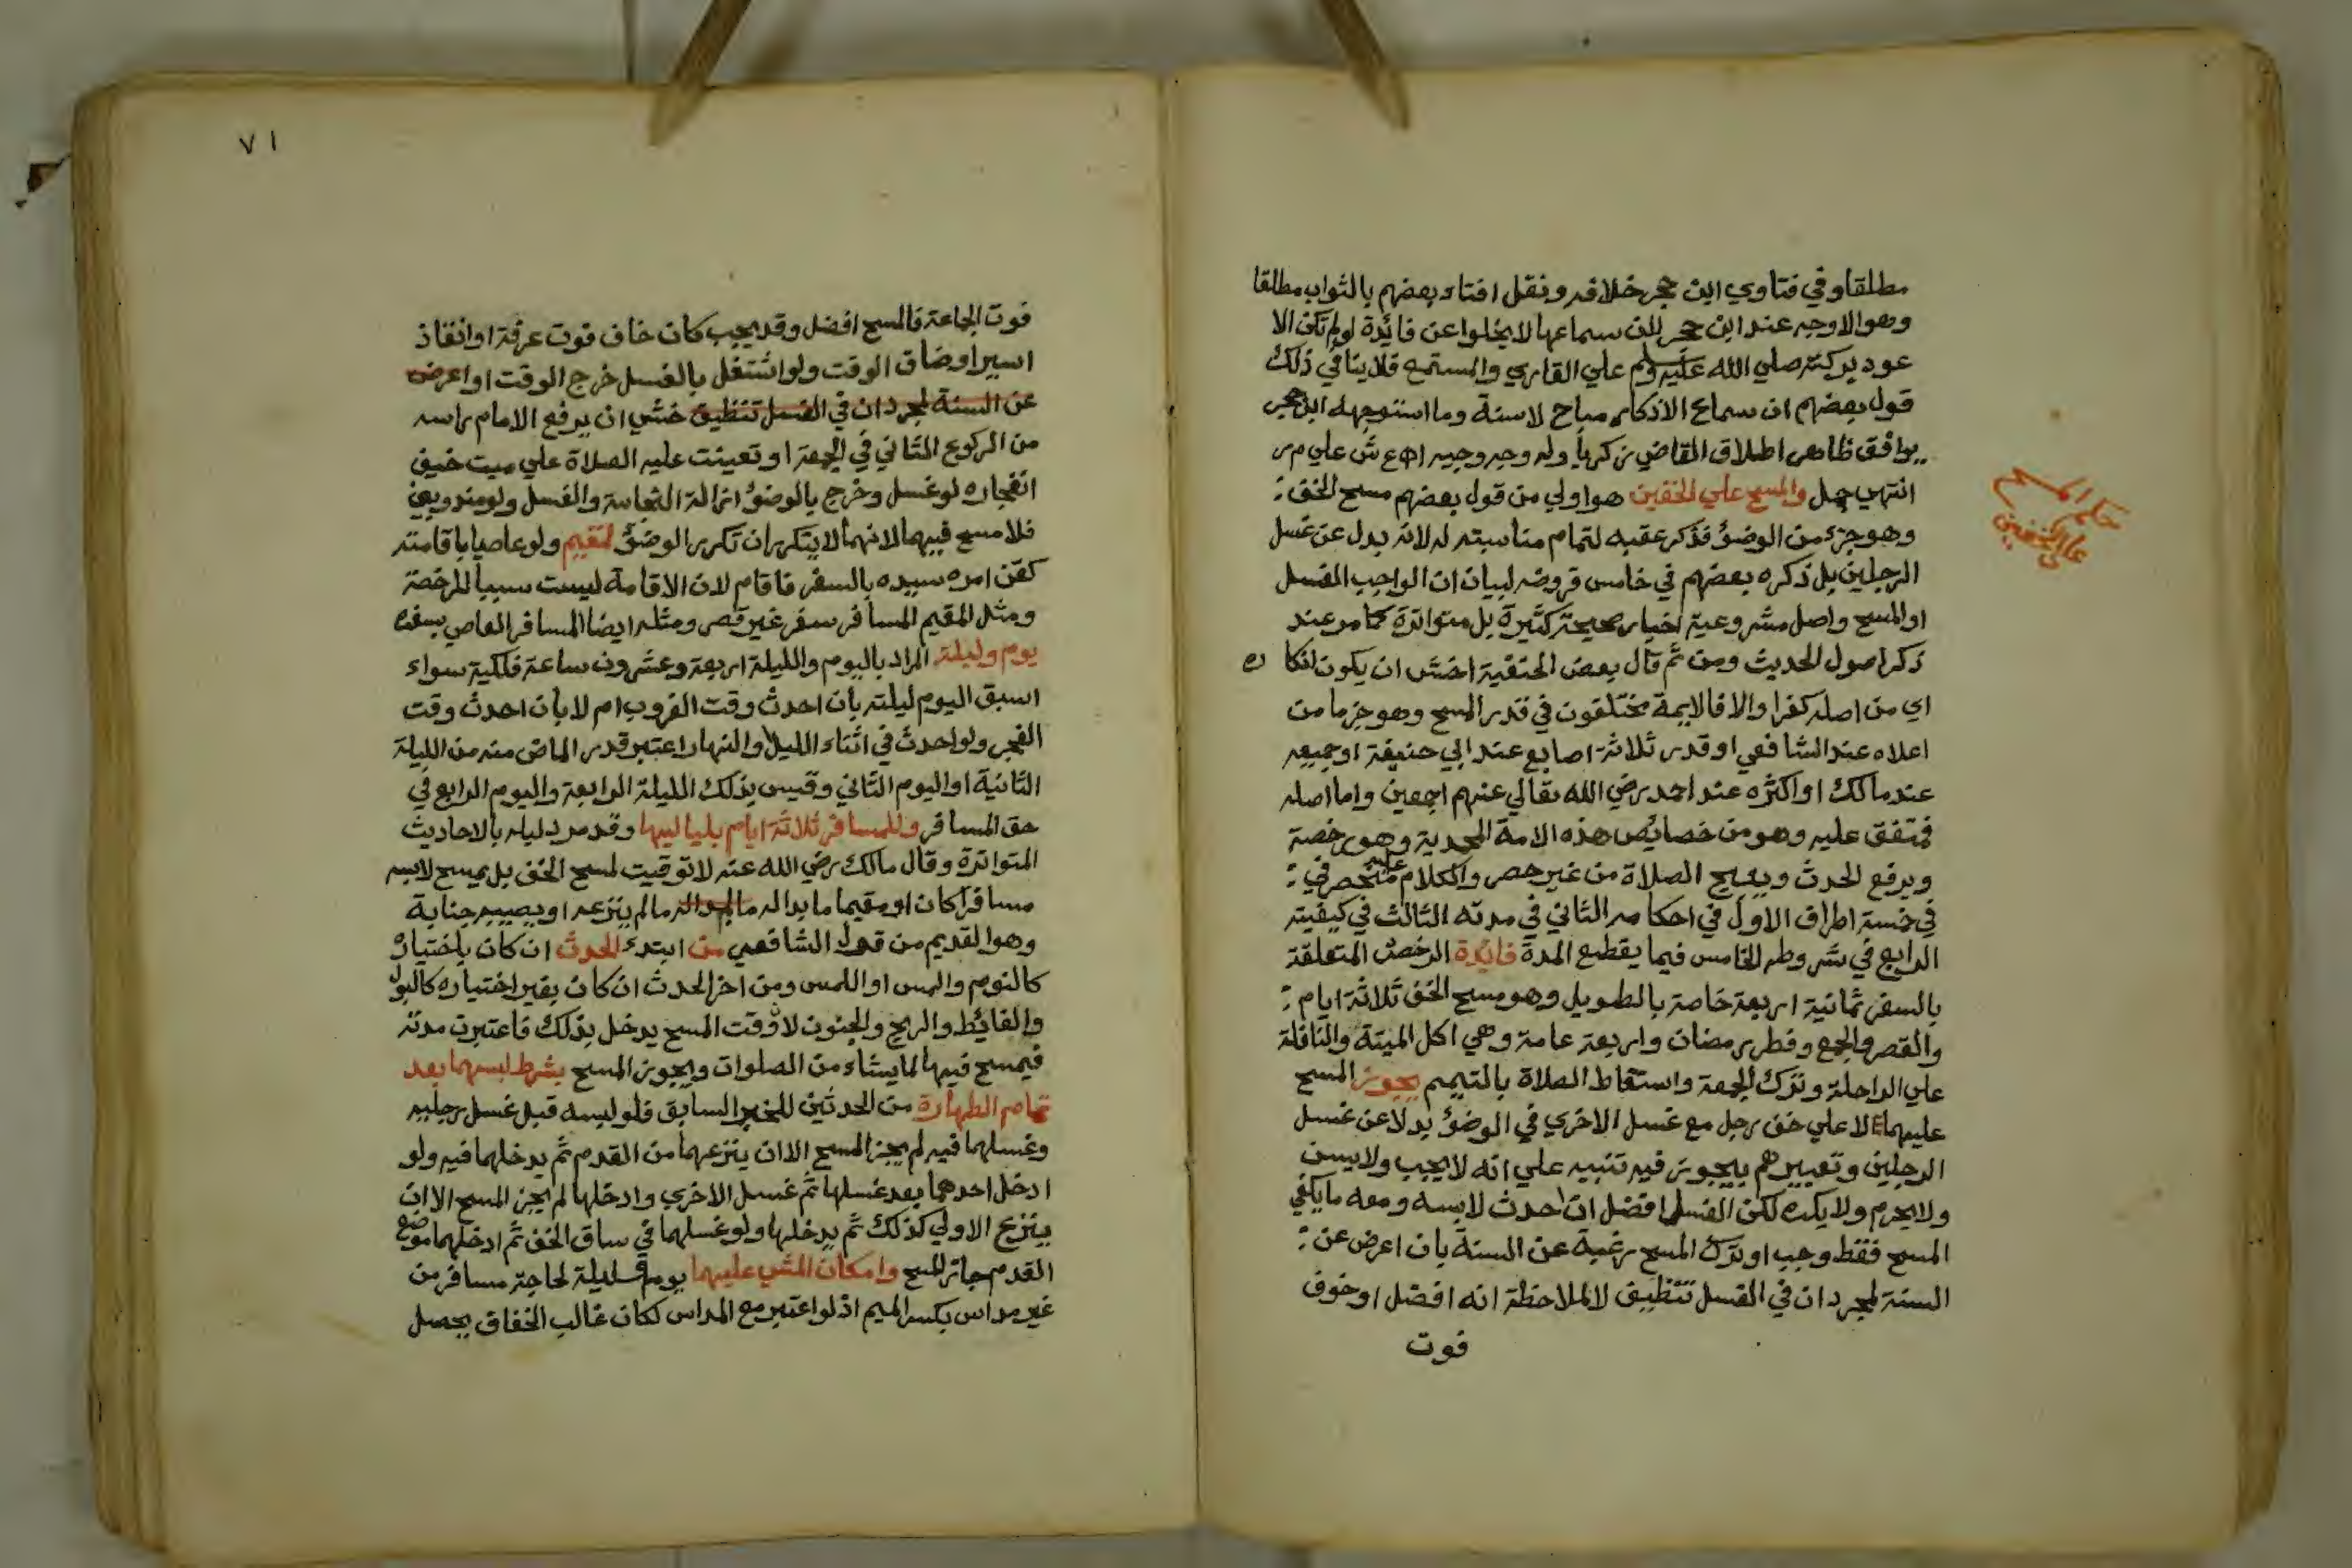 مطلقا وفي فتاوي ابن حجر خلافه ونقل افتاء بعضهم بالثواب مطلقا
وهو الاوجه عند ابن حجر لان سماعها لا يخلوا عن فائدة لو لم تكن الا
عود بركته صلي الله عليه وسلم علي القاري والمستمع فلا ينافي ذلك
قول بعضهم ان سماع الاذكار مباح لا سنة وما استوجهه ابن حجر
يوافق ظاهر اطلاق القاضي زكريا وله وجه وجيه اهـ ع ش علي م ر
انتهي جمل والمسح علي الخفين هو اولي من قول بعضهم مسح الخف
وهو جزء من الوضؤ فذكر عقبه لتمام مناسبته له لانه بدل عن غسل
الرجلين بل ذكره بعضهم في خامس فروضه لبيان ان الواجب الغسل
او المسح واصل مشروعية اخبار صحيحة كثيرة بل متواترة كما مر عند
ذكر اصول الحديث ومن ثم قال بعض الحنفية اخشي ان يكون انكا ره
اي من اصله كفرا والا فالايمة مختلفون في قدر المسح وهو جزء ما من
اعلاه عند الشافعي او قدر ثلاثة اصابع عند ابي حنيفة او جميعه
عند مالك او اكثره عند احمد رضي الله تعالي عنهم اجمعين واما اصله
فمتفق عليه وهو من خصائص هذه الامة المحمدية وهو رخصة
ويرفع الحدث ويبيح الصلاة من غير حصر والكلام عليه منحصر في
في خمسة اطراف الاول في احكامه الثاني في مدته الثالث في كيفيته
الرابع في شروطه الخامس فيما يقطع المدة فائدة الرخص المتعلقة
بالسفر ثمانية اربعة خاصة بالطويل وهو مسح الخف ثلاثة ايام
والقصر والجمع وفطر رمضان واربعة عامة وهي اكل الميتة والنافلة
علي الراحلة وترك الجمعة واسقاط الصلاة بالتيمم يجوز المسح
عليهما لا علي خف رجل مع غسل الاخري في الوضؤ بدلا عن غسل
الرجلين وتعبيرهم بيجوز فيه تنبيه علي انه لا يجب ولا يسن
ولا يحرم ولا يكره لكن الغسل افضل ان احدث لابسه ومعه ما يكفي
المسح فقط وجب او ترك المسح رغبة عن السنة بان اعرض عن
السنة لمجرد ان في الغسل تنظيف لا لملاحظة انه افضل او خوف
فوت
حكم المسح
علي الخفين
٧١
فوت الجماعة فالمسح افضل وقد يجب كان خاف فوت عرفة او انقاذ
اسير او ضاق الوقت ولو اشتغل بالغسل خرج الوقت او اعرض
عن السنة لمجرد ان في الغسل تنظيف خشي ان يرفع الامام راسه
من الركوع الثاني في الجمعة او تعينت عليه الصلاة علي ميت خيف
انفجاره لو غسل وخرج بالوضؤ ازالة النجاسة والغسل ولو مندوبين
فلا مسح فيهما لانهما لا يتكرران تكرر الوضؤ لمقيم ولو عاصيا باقامته
كقن امره سيده بالسفر فاقام لان الاقامة ليست سببا للرخصة
ومثل المقيم المسافر سفر غير قصر ومثله ايضا المسافر العاصي بسفره
يوم وليلة المراد باليوم والليلة اربعة وعشرون ساعة فلكية سواء
اسبق اليوم ليلته بان احدث وقت الغروب ام لا بان احدث وقت
الفجر ولو احدث في اثناء الليل او النهار اعتبر قدر الماضي منه من الليلة
الثانية او اليوم الثاني وقيس بذلك الليلة الرابعة واليوم الرابع في
حق المسافر وللمسافر ثلاثة ايام بلياليها وقد مر دليله بالاحاديث
المتواترة وقال مالك رضي الله عنه لا توقيت لمسح الخف بل يمسح لابسه
مسافرا كان او مقيما ما بدا له ما لم ينزعه او يصيبه جنابة
وهو القديم من قول الشافعي من ابتدء الحدث ان كان باختياره
كالنوم والمس او اللمس ومن اخر الحدث ان كان بغير اختياره كالبول
والغائط والريح والجنون لان وقت المسح يدخل بذلك فاعتبرت مدته
فيمسح فيها لما يشاء من الصلوات ويجوز المسح بشرط لبسهما بعد
تمام الطهارة من الحدثين للخبر السابق فلو لبسه قبل غسل رجليه
وغسلهما فيه لم يجز المسح الا ان ينزعهما من القدم ثم يدخلهما فيه ولو
ادخل احدهما بعد غسلها ثم غسل الاخري وادخلها لم يجز المسح الا ان
ينزع الاولي كذلك ثم يدخلها ولو غسلهما في ساق الخف ثم ادخلهما موضع
القدم جاز المسح وامكان المشي عليهما يوما وليلة لحاجة مسافر من
غير مداس بكسر الميم اذ لو اعتبر مع المداس لكان غالب الخفاف يحصل